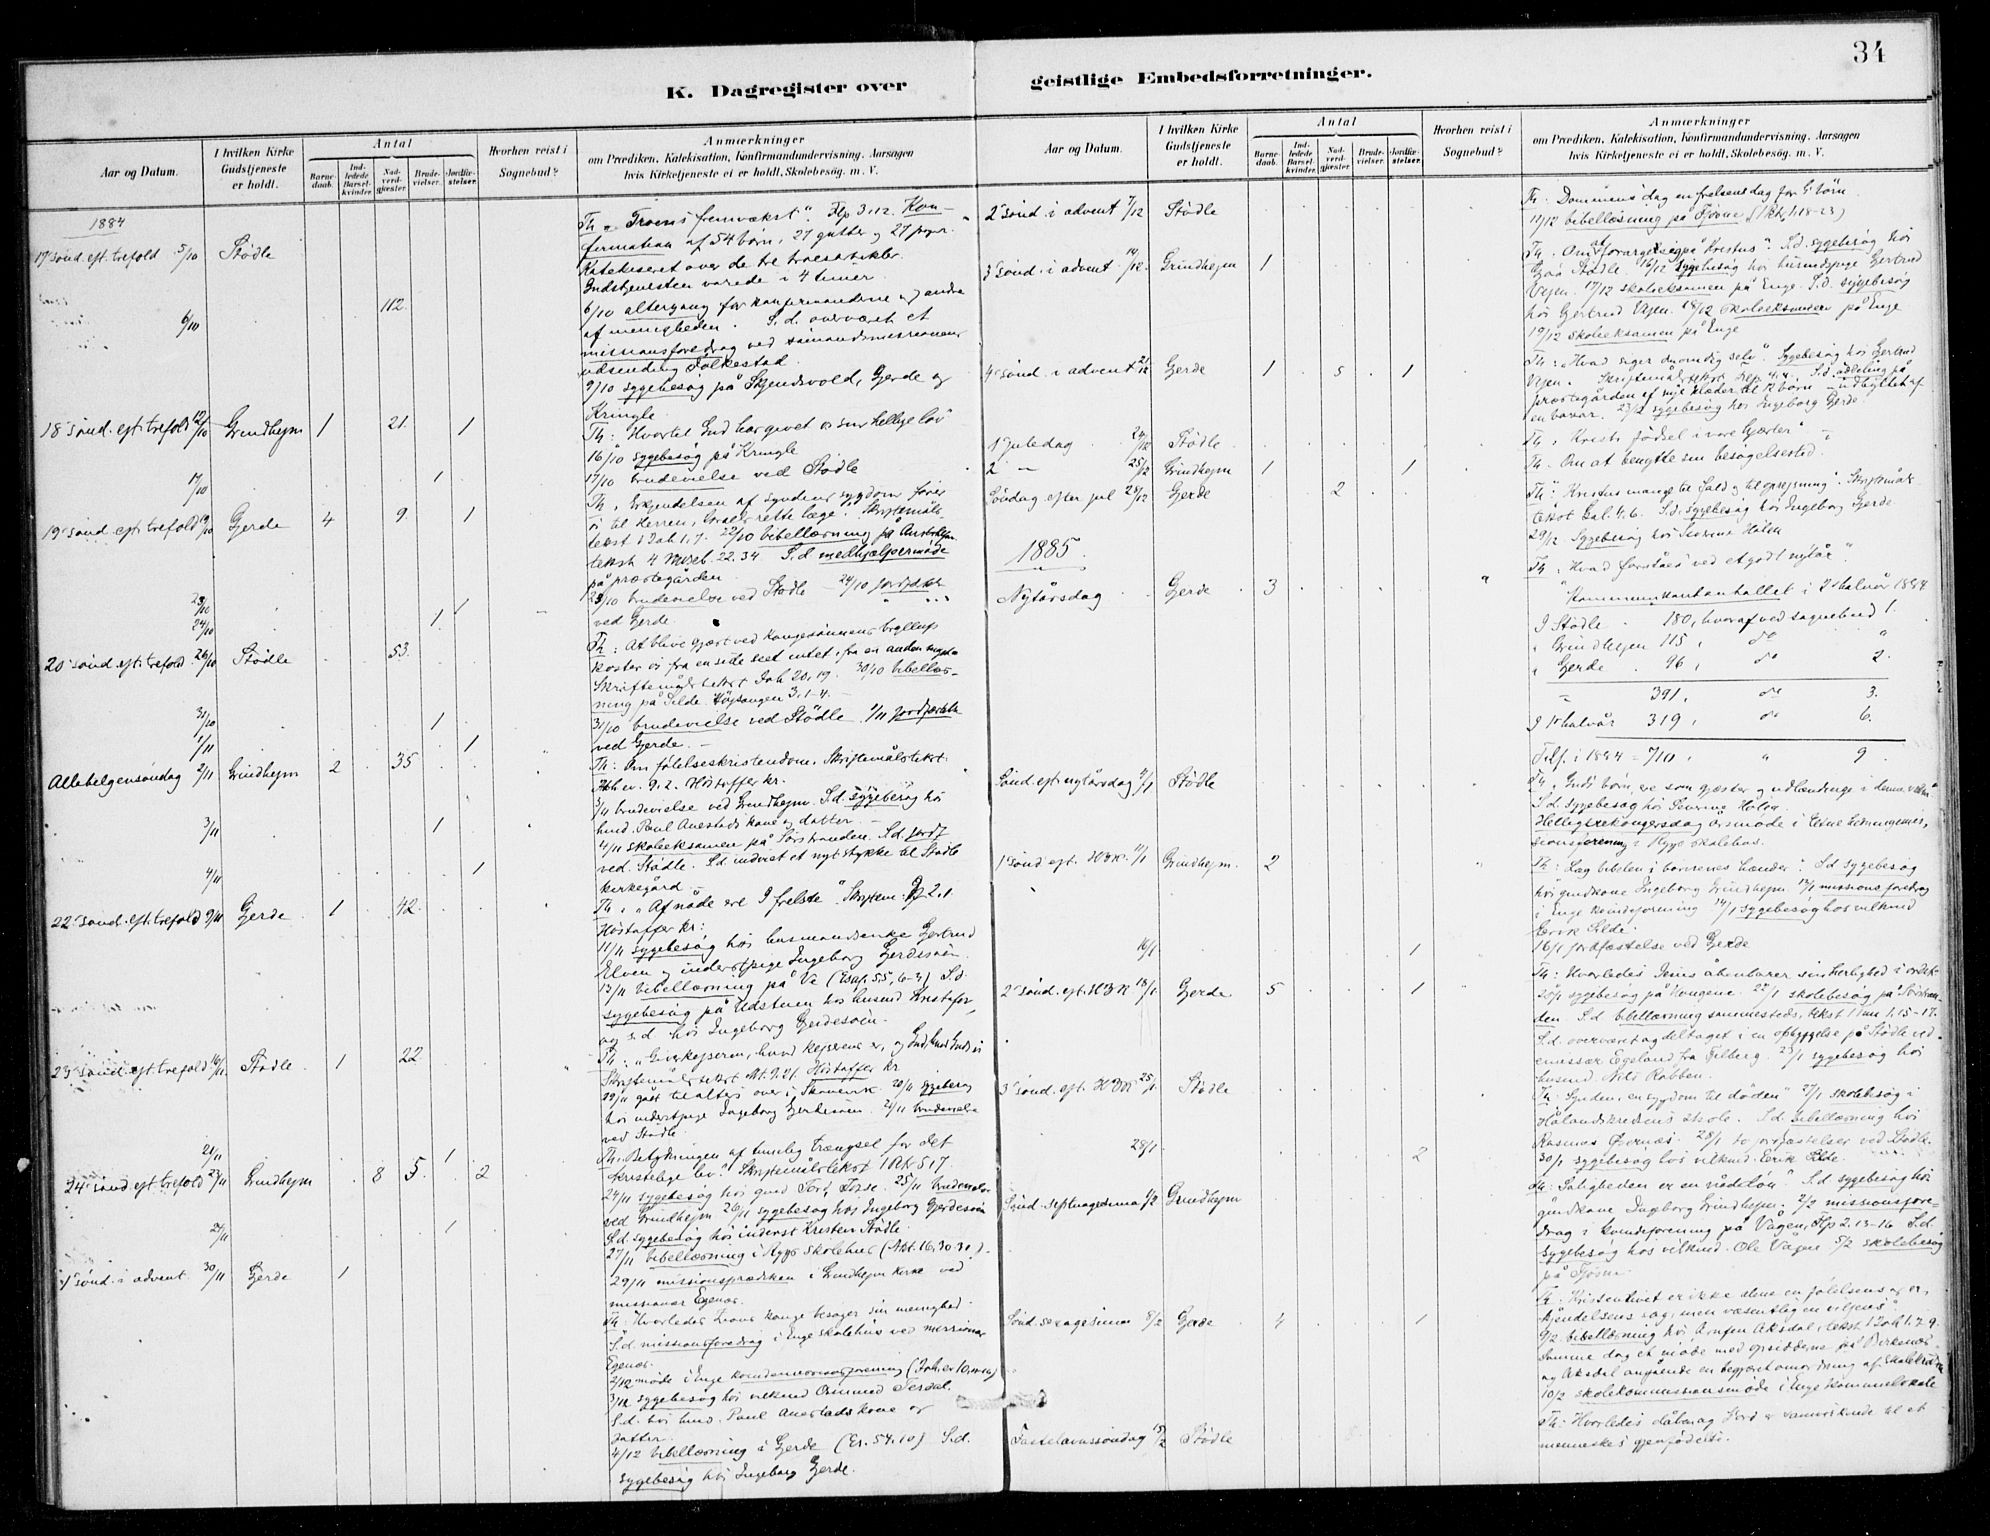 34
K. Dagregister over geistlige Embedsforretninger.
Aar og Datum.
I hvilken Kirke Gudstjeneste er holdt.
Antal
Barnedaab.
Indledede Barselkvinder.
Nadverdgjester.
Brudevielser.
Jordfæstelser.
Hvorhen reist i Sognebud?
Anmærkninger
om Prædiken, Katekisation, Konfirmandundervisning, Aarsagen
hvis Kirketjeneste ei er holdt, Skolebesøg. m. V.
1884
19 sønd. eft. trefold 5/10 Stødle
Th „Troens fremvækst". Flp 3.12. Kon-
firmation af 54 børn, 27 gutter og 27 piger.
Katekiseret over de tre troesartikler.
Gudstjenesten varede i 4 timer
6/10 112.
6/10 altergang for konfirmanderne og andre
af menigheden. S.d. overværet et
missionsforedrag ved
udsending Folkestad
9/10 sygebesøg på Skjendsvold, Gjerde og
Kringle.
18 sønd. eft. trefold 12/10 Grindhejm 1 21. 1
Th: Hvortil Gud har givet os sin hellige lov
16/10 sygebesøg på Kringle
17/10 1
17/10 brudevielse ved Stødle
19 sønd. eft. trefold 19/10 Gjerde 4 9. 1
Th, Erkjendelsen af syndens sygdom fører
til Herren, Israels rette læge". Skriftemåls-
tekst 1 Joh 1,7. 22/10 bibellæsning på
tekst 4 Moseb. 22.34 S.d medhjælpermøde
på præstegården
23/10 brudevielse ved Stødle – 24/10 jordfæst.
ved Gjerde.
20 sønd. eft. trefold 26/10 Stødle 53.
Th: At blive gjæst ved kongesønnens bryllup
koster os fra en side seet intet, fra en anden
Skriftemålstekst Joh 20,19. 30/10 bibellæs-
ning på Silde Højsangen 3.1-4. –
31/10 1
31/10 brudevielse ved Stødle. 1/11 jordfæstelse
1/11 1
ved Gjerde. –
Allehelgensøndag 2/11 Grindhejm 2 35
Th: Om følelseskristendom. Skriftemålstekst.
9.2. Høstoffer kr.
3/11 1
3/11 brudevielse ved Grindhejm. S.d. sygebesøg hos
husd. Paul Anestads kone og datter. –
4/11 skoleeksamen på Sørstranden. S.d. jordf
ved Stødle. S.d. indviet et nyt stykke til Stødle
4/11 1
kirkegård –
22 sønd. eft. trefold 9/11 Gjerde 1 42.
Th. „Af nåde ere I frelste". Skriftem. 2.1
Høstoffer kr:
11/11 sygebesøg hos husmandsenke Gjertrud
Elven og inderstpige Ingeborg Gjerdesøen.
13/11 bibellæsning på Ve (Esaj. 55, 6-3) S.d.
sygebesøg på Udstuen hos husmd Kristofer,
og s.d hos Ingeborg Gjerdesøen.
23 sønd. eft. trefold 16/11 Stødle 1 22.
Th: „Giver kejseren, hvad kejserens er, og Gud, hvad Guds er
Skriftemålstekst Mt. 9.21. Høstoffer kr
19/11 gået til alters over i Skånevik 20/11 sygebesøg
hos inderstpige Ingeborg Gjerdesøen. 21/11 brudevielse
ved Stødle
21/11 1
24 sønd. eft. trefold 23/11 Grindhejm 8 5. 2
Th. Betydningen af timelig trængsel for det
kristelige liv." Skriftemålstekst 1 Pt 5,7
24/11 sygebesøg hos gmd Tort. Tosse. 25/11 brudevielse
ved Grindhejm 26/11 sygebesøg hos Ingeborg Gjerdesøen
S.d. sygebesøg hos inderst Kristen Stødle
27/11 bibellæsning i Rygs skolehus (Akt. 16, 30-31).
29/11 missionsprædiken i Grindhejm kirke ved
missionær Egenæs.
1 sønd. i advent 30/11 Gjerde 1
Th: Hvorledes Zions konge besøger sin menighed.
S.d. missionsforedrag i Enge skolehus ved missionær
Egenæs.
2/12 møde i Enge kvindemissionsforening
3/12 sygebesøg hos vilkmd Osmund Tesdal.
S.d. hos husd. Paul Anestads kone og
datter.
4/12 bibellæsning i Gjerde (Es. 54.10) S.d.
sygebesøg hos Ingeborg Gjerde.
2 sønd. i advent 7/12 Stødle
Th: Dommens dag en frelsens dag for G's børn
11/12 bibellæsning på Fjøsne (1 Pt 1,18-23)
3 sønd. i advent 14/12 Grindhejm 1
Th. Om at forarges på Kristus". S.d. sygebesøg hos
Stødle. 16/12 sygebesøg hos husmdspige Gjertrud
Vejen. 17/12 skoleeksamen på Enge. S.d. sygebesøg
hos Gjertrud Vejen. 18/12 skoleeksamen på Enge
19/12 skoleeksamen på Enge
4 sønd. i advent 21/12 Gjerde 1 5 1
Th: „Hvad siger du om dig selv". Sygebesøg hos Gjertrud
Vejen. Skriftemålstekst Flp. 4.4. S.d. uddeling på
præstegården af nye klæder til 12 børn – udbyttet af
en bazar. 23/12 sygebesøg hos Ingeborg Gjerde.
1 Juledag 24/12 Stødle
Th. Kristi fødsel i vore hjerter" –
2 – 25/12 Grindhejm 1 1
Th. Om at benytte sin besøgelsestid.
Søndag efter jul 28/12 Gjerde 2
Th: Kristus mange til fald og til oprejsning". Skriftemåls-
tekst Gal. 4.6. S.d. sygebesøg hos Ingeborg Gjerde
29/12 Sygebesøg hos Severine Holen
1885.
Nytårsdag Gjerde 3
Th. Hvad forståes ved et godt nytår"
Kommunikantantallet i 2 halvår 1884
I Stødle 180, hvoraf ved sognebud 1.
„ Grindhejm 115, do "
„ Gjerde 96, do 2
– 391, do 3.
I 1 halvår 319, do 6.
Tils. i 1884 = 710, " 9
Sønd. eft. nytårsdag 4/1 Stødle
Th. Guds børn ere som gjæster og udlændinge i denne verden
S.d. sygebesøg hos Severine Holen
Helligtrekongersdag årsmøde i Etne
sionsforening i Rygs skolehus.
1 sønd eft. H3K. 11/1 Grindhejm 2
Th: Læg bibelen i børnenes hænder". S.d sygebesøg
hos gmdkone Ingeborg Grindhejm. 13/1 missionsforedrag
i Enge kvindeforening 14/1 sygebesøg hos vilkmd
Erik Silde.
16/1 1
16/1 jordfæstelse ved Gjerde
2 sønd. eft. H3K 18/1 Gjerde 5 1
Th: Hvorledes Jesus åbenbarer sin herlighed i ordet
20/1 sygebesøg på Haugene. 22/1 skolebesøg på Sørstran-
den. S.d. bibellæsning sammesteds, tekst 1 Tim 1,15-17.
S.d. overværet og deltaget i en opbyggelse på Stødle ved
emissær Egeland fra Fitberg. 23/1 sygebesøg hos
husmd. Nils Rabben.
3 sønd. eft. H3K 25/1 Stødle
Th: Synden, en sygdom til døden" 27/1 skolebesøg i
Hålandskredsens skole. S.d. bibellæsning hos
Rasmus 28/1 to jordfæstelser ved Stødle.
28/1 2
30/1 sygebesøg hos vilkmd. Erik Silde.
Sønd. septuagesima 1/2 Grindhejm
Th: Saligheden er en nådeløn" S.d sygebesøg hos
gmdkone Ingeborg Grindhejm. 2/2 missionsfore-
drag i kvindeforening på Vågen, Flp 2.13-16 S.d.
sygebesøg hos vilkmd. Ole Vågen 5/2 skolebesøg
på Fjøsne.
Sønd. sexagesima 8/2 Gjerde 4 1
Th: Kristenlivet er ikke alene en følelsens og er-
kjendelsens sag, men væsentlig en viljens"
9/2 bibellæsning hos Arnfin Aksdal, tekst 1 Joh 1.7-9.
Samme dag et møde med opsidderne på Birkenæs
og Aksdal angående en begjært omordning af skolekredsen
10/2 skolekommissionsmøde i Enge kommunelokale
Fastelavnssøndag 15/2 Stødle
Th: Hvorledes dåben og Jord er samvirkende til et
menneskes gjenfødelse.